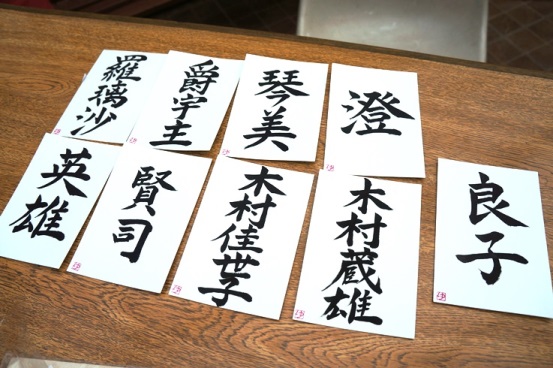 羅璃沙
爵宇主
琴美
澄
英雄
賢司
木村佳世子
木村蔵雄
良子